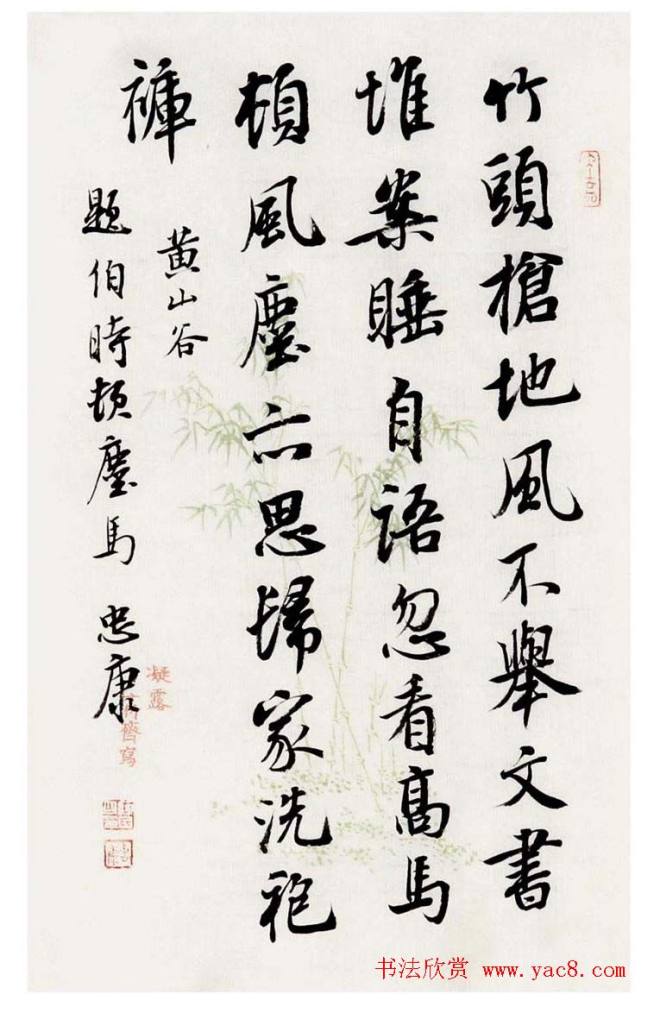 竹頭槍地風不舉文書
堆案睡自語忽看高馬
頓風塵亦思歸家洗袍
褲
黃山谷
題伯時頓塵馬 忠康
凝露
齋寫
书法欣赏 www.yac8.com